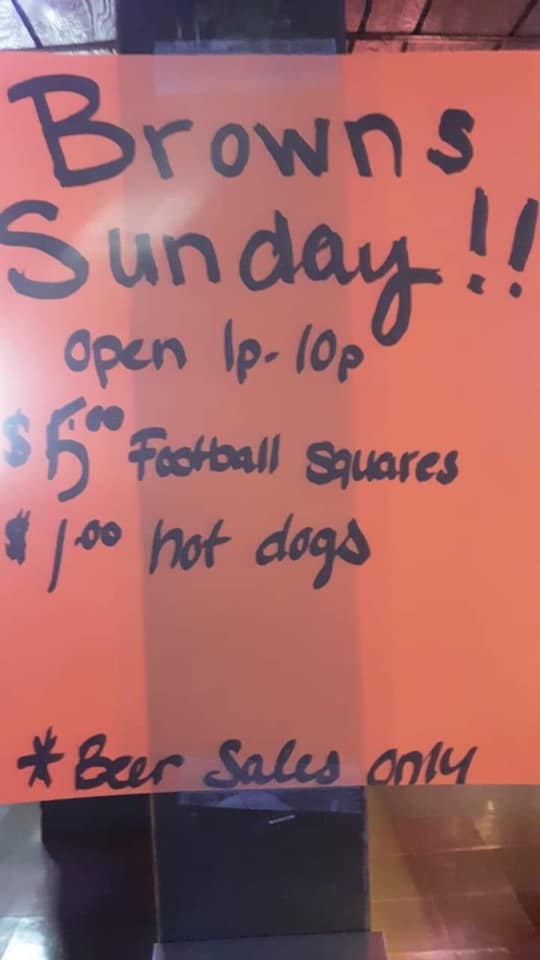 Browns
Sunday!!
open 1p-10p
$5.00 Football squares
$1.00 hot dogs
*Beer Sales only